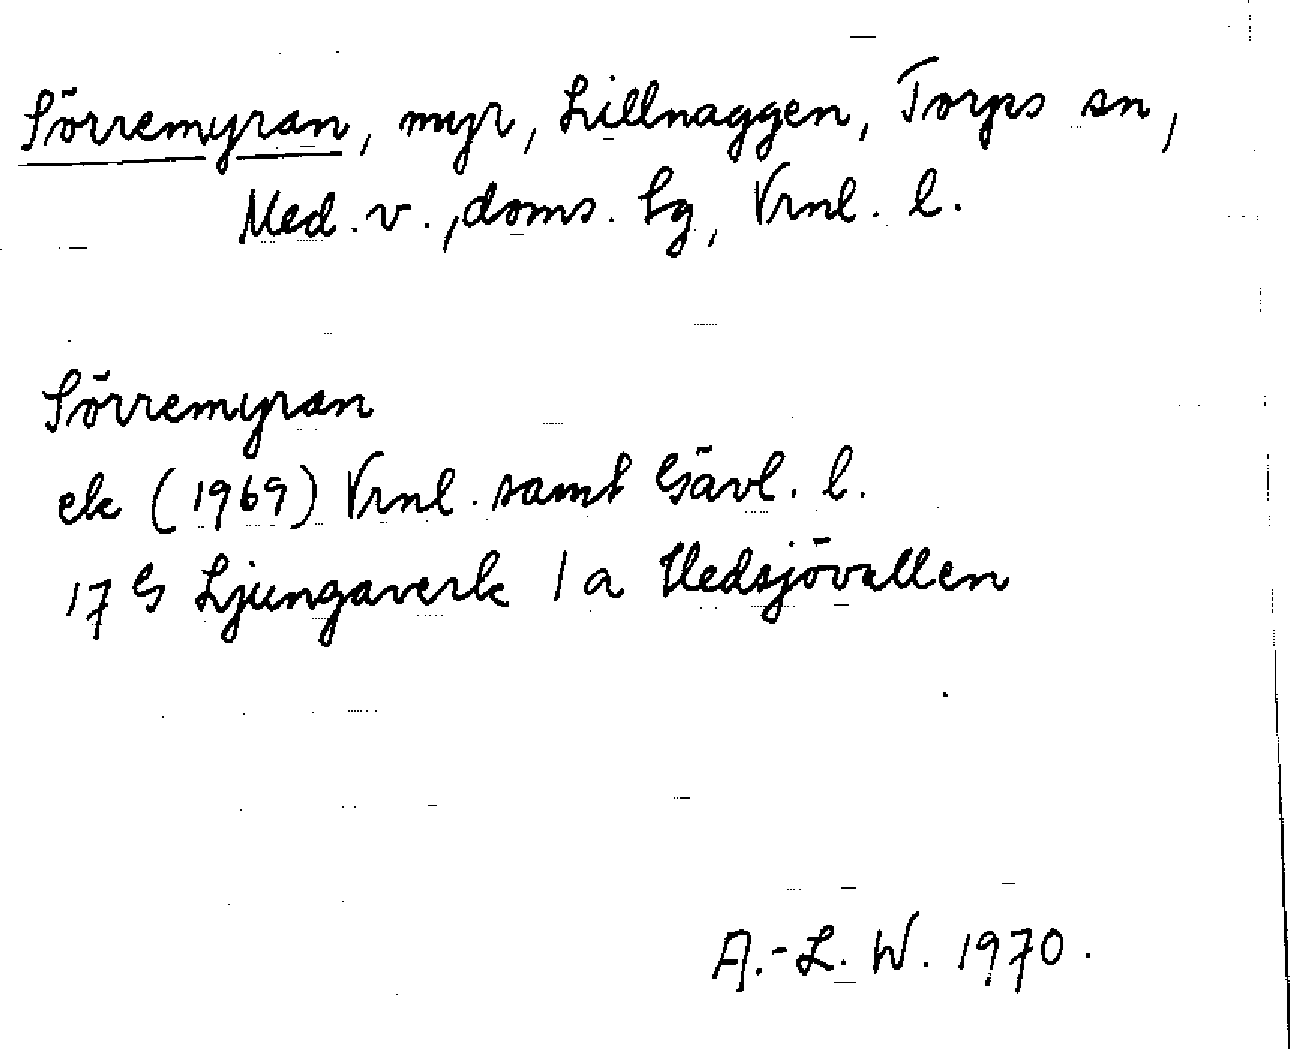 Sörremyran, myr, Lillnaggen, Torps sn,
Med. v., doms. Sg, Vrnl. l.
Sörremyran
ek (1969) Vrnl. samt Gävl. l.
17 G Ljungaverk 1 a Hedsjövallen
A.-L. W. 1970.